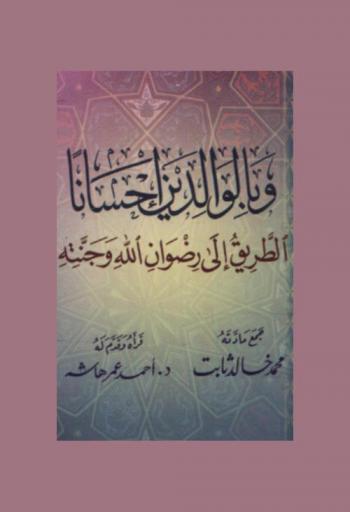 وَبِالْوَالِدَيْنِ إِحْسَانًا
الطَّرِيقُ إِلَى رِضْوَانِ اللهِ وَجَنَّتِهِ
جمع مادته
محمد خالد ثابت
قرأه وقدم له
د. أحمد عمر هاشم